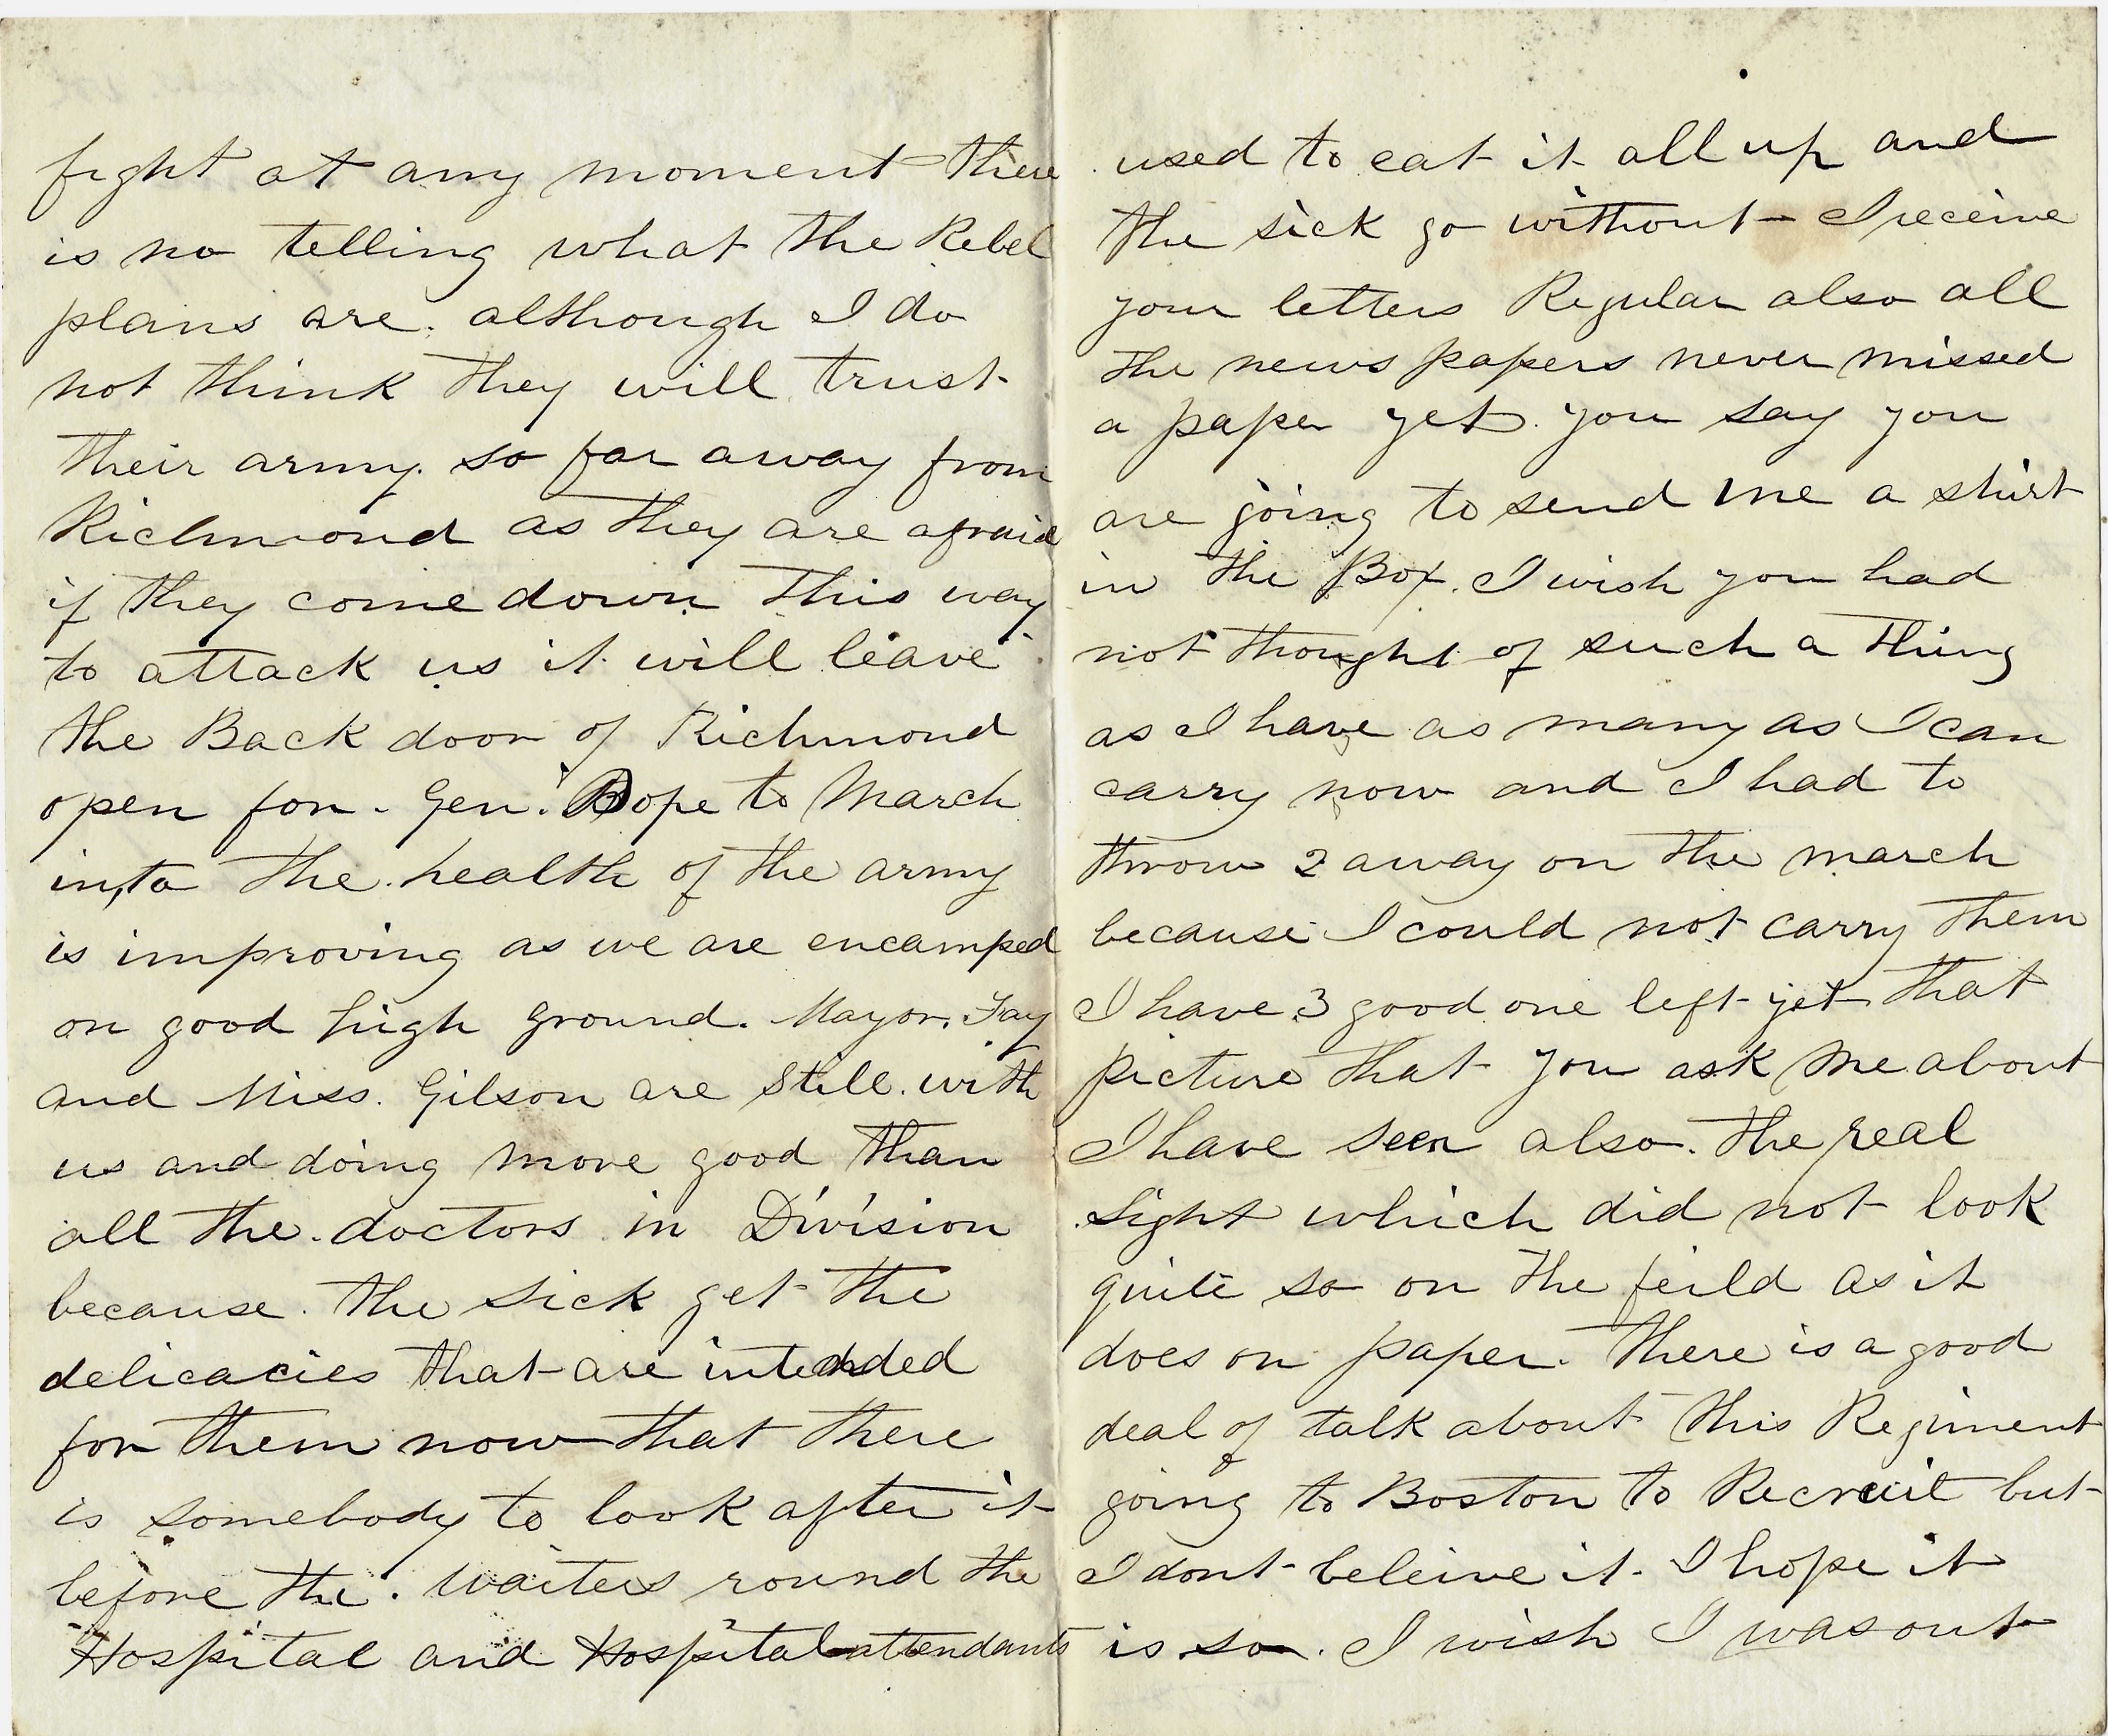 fight at any moment there
is no telling what the Rebel
plans are. although I do
not think they will trust
their army. so far away from
Richmond as they are afraid
if they come down this way
to attack us it will leave
the Back door of Richmond
open for. Gen. Pope to March
into the. health of the army
is improving as we are encamped
on good high ground. Mayor. Fay
and Miss. Gilson are still. with
us and doing more good than
all the. doctors in Division
because. the sick get the
delicacies that are intended
for them now that there
is somebody to look after it
before the. waiters round the
Hospital and Hospital attendants
used to eat it all up and
the sick go without I receive
your letters Regular also all
the news papers never missed
a paper yet. you say you
are going to send me a shirt
in the Box. I wish you had
not thought of such a thing
as I have as many as I can
carry now and I had to
throw 2 away on the march
because I could not carry them
I have 3 good one left yet that
picture that you ask me about
I have seen also. the real
sight which did not look
quite so on the feild as it
does on paper. There is a good
deal of talk about this Regiment
going to Boston to Recruit but
I dont beleive it. I hope it
is so. I wish I was out